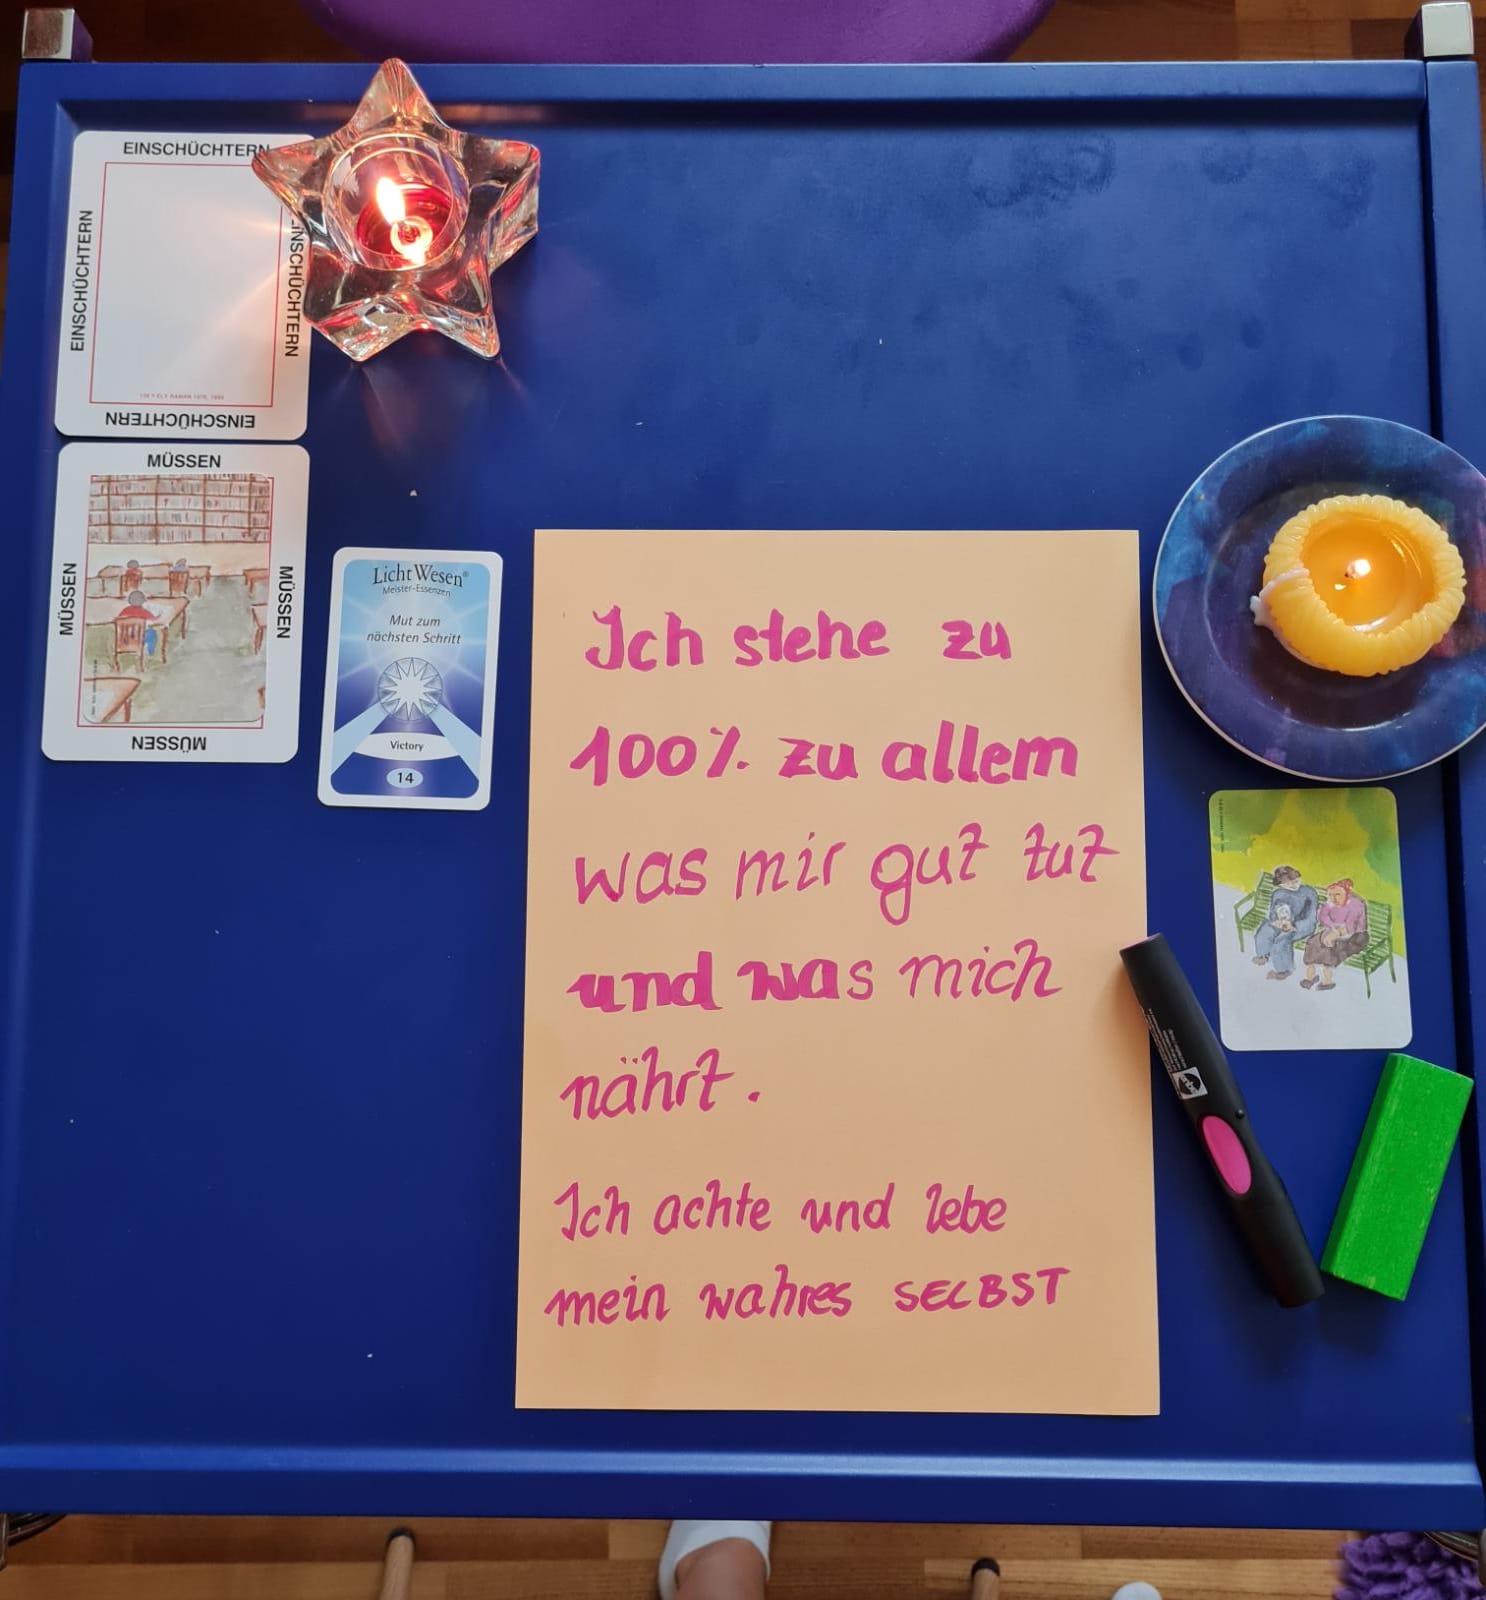 EINSCHÜCHTERN
EINSCHÜCHTERN
EINSCHÜCHTERN
EINSCHÜCHTERN
MÜSSEN
MÜSSEN
MÜSSEN
MÜSSEN
LichtWesen®
Meister-Essenzen
Mut zum
nächsten Schritt
Victory
14
Ich stehe zu
100% zu allem
was mir gut tut
und was mich
nährt.
Ich achte und lebe
mein wahres SELBST